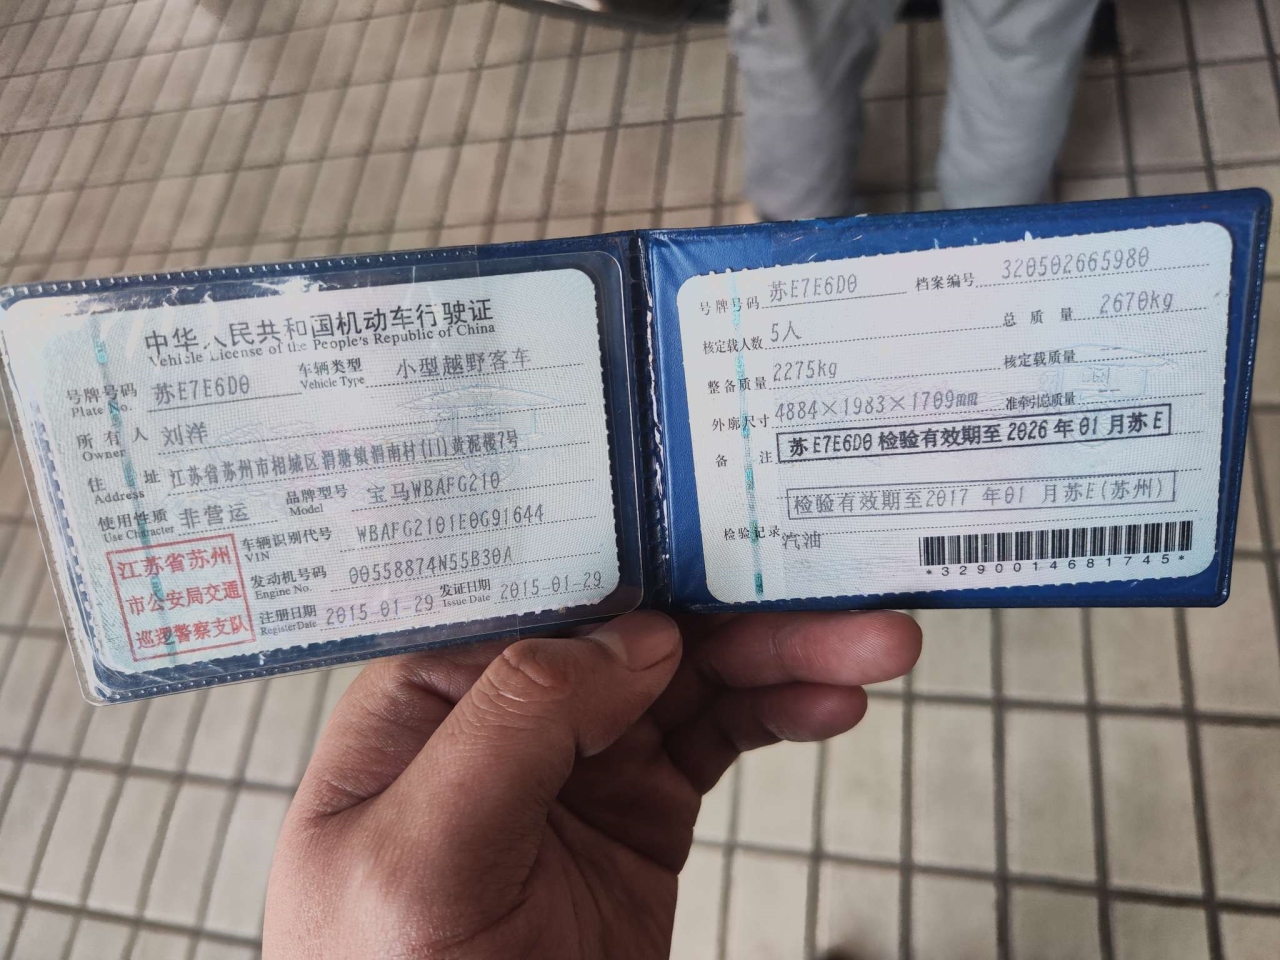 中华人民共和国机动车行驶证
Vehicle License of the People's Republic of China
号牌号码 苏E7E6D0 车辆类型 小型越野客车
Plate No. Vehicle Type
所有人 刘洋
Owner
住址 江苏省苏州市相城区渭塘镇渭南村(11)黄泥楼7号
Address
使用性质 非营运 品牌型号 宝马WBAFG210
Use Character Model
江苏省苏州
市公安局交通
巡逻警察支队
车辆识别代号 WBAFG2101E0G91644
VIN
发动机号码 00558874N55B30A
Engine No.
注册日期 2015-01-29 发证日期 2015-01-29
Register Date Issue Date
号牌号码 苏E7E6D0 档案编号 320502665980
核定载人数 5人 总质量 2670kg
整备质量 2275kg 核定载质量
外廓尺寸 4884×1983×1709mm 准牵引总质量
备注 苏E7E6D0检验有效期至2026年01月苏E
检验有效期至2017 年01 月苏E(苏州)
检验记录 汽油
*3290014681745*